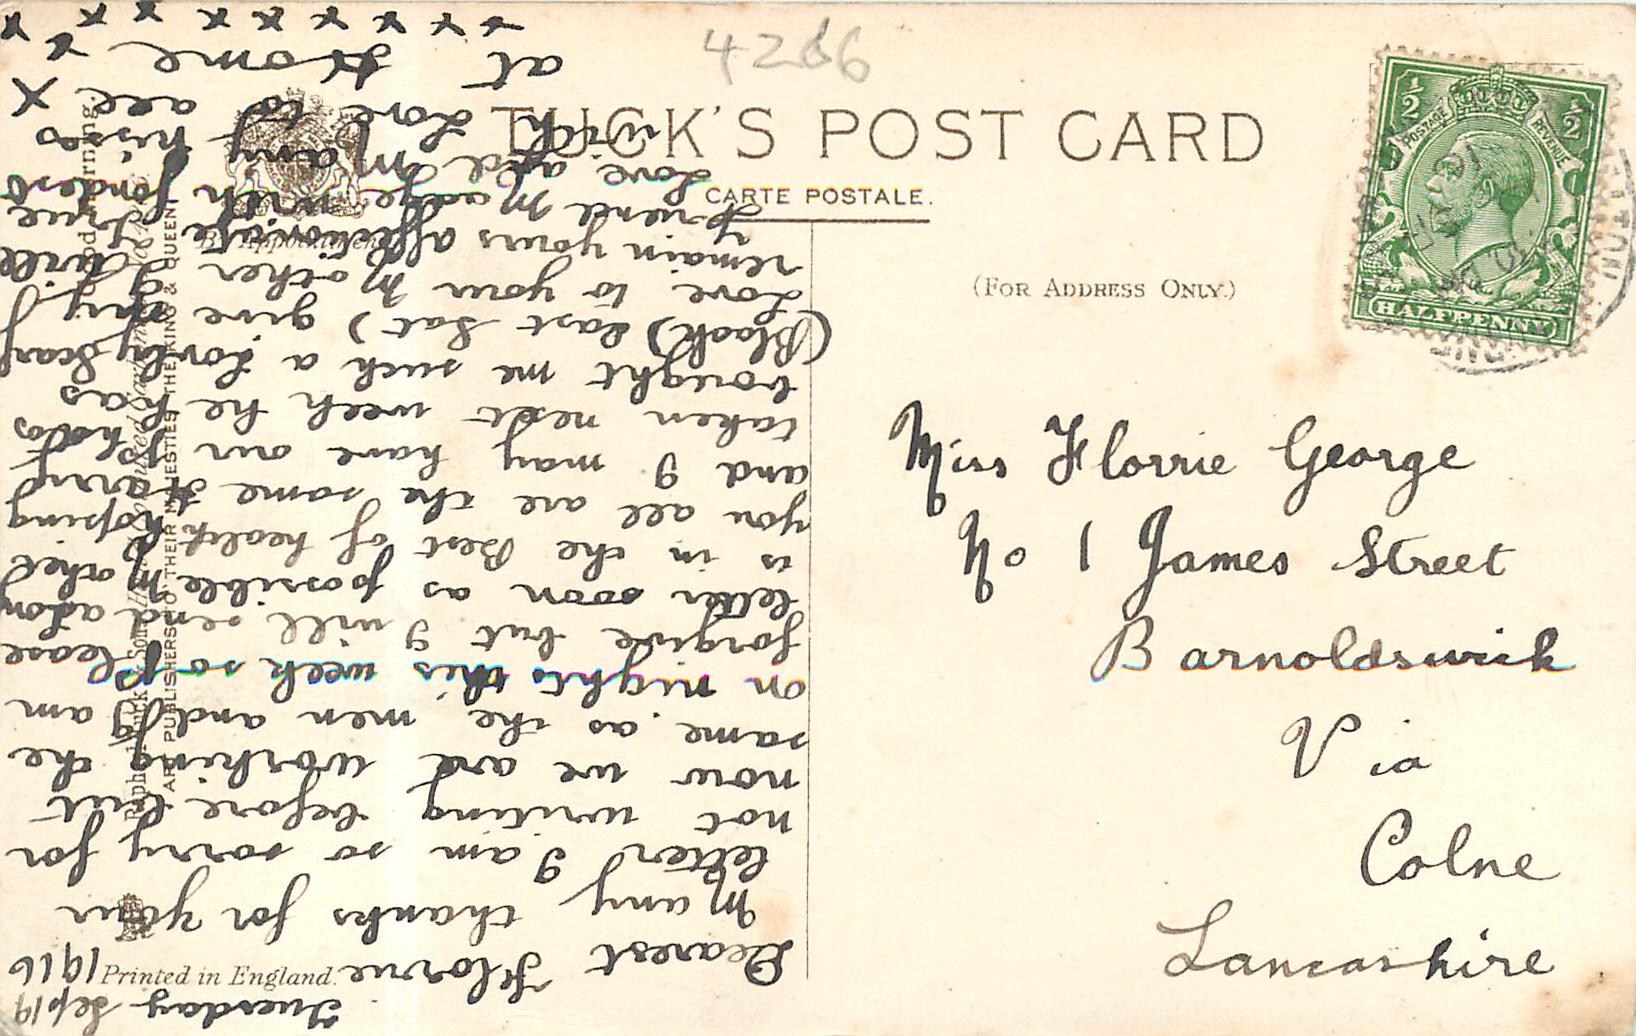 4266
TUCK'S POST CARD
CARTE POSTALE.
(FOR ADDRESS ONLY.)
½ ½
POSTAGE REVENUE
HALFPENNY
Miss Florrie George
No 1 James Street
Barnoldswick
Via
Colne
Lancashire
Tuesday Sep 19
1916
Dearest Florrie
Many thanks for your
letter I am so sorry for
not writing before but
now we are working the
same as the men and I am
on nights this week so Please
forgive but I will send a long
letter soon as possible Mabel
is in the Best of health hoping
you all are the same Harry
and I may have our photos
taken next week he has
bought me such a Lovly Scarf
(Black) last Sat) give my
Love to your Mother I will
remain yours affectionate True
friend Madge with fondest
Love and Many kisses
Love to all
at Home
x x x x x x x x x
x x
By Appointment
ART PUBLISHERS TO THEIR MAJESTIES THE KING & QUEEN
Printed in England.